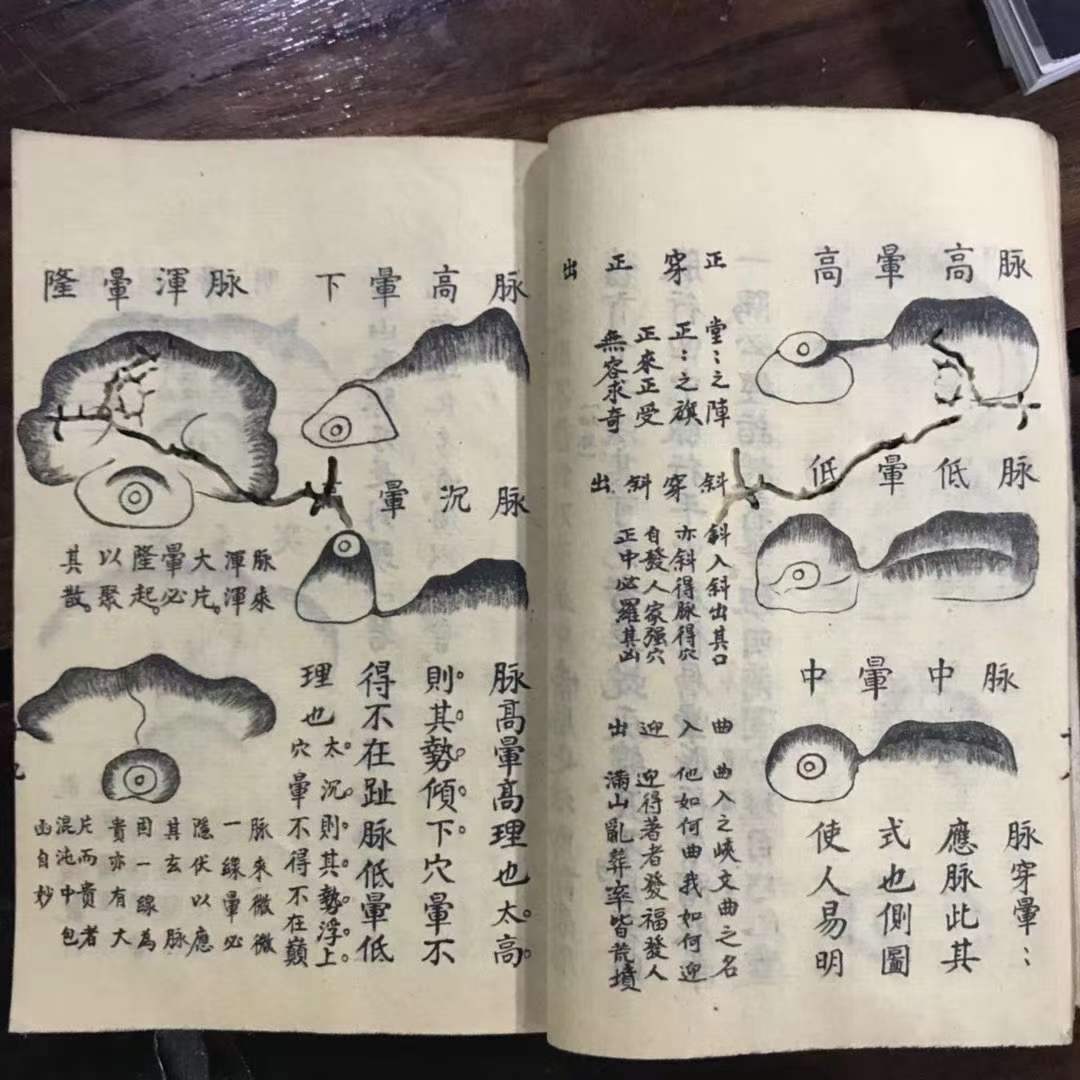 脈高暈高
脈低暈低
脈中暈中
脈穿暈〻
應脈此其
式也側圖
使人易明
正穿正出
堂〻之陣
正〻之旗
正來正受
無容求奇
斜穿斜出
斜入斜出其口
亦斜得脈得穴
自發人家强穴
正中必羅其凶
曲入迎出
曲入之峽文曲之名
他如何曲我如何迎
迎得著者發福發人
滿山亂葬率皆荒墳
脈高暈下
脈沉暈
脈高暈高理也太高。
則。其。勢。傾。下。穴暈不
得不在趾脈低暈低
理也太。沉。則。其。勢。浮。上。
穴暈不得不在巔
脈渾暈隆
脈來
渾渾
大片。
暈必
隆起。
以聚
其散。
脈來微微
一線暈必
隱伏以應
其玄脈
固一線為
貴亦有大
片而貴者
混沌中包
自妙